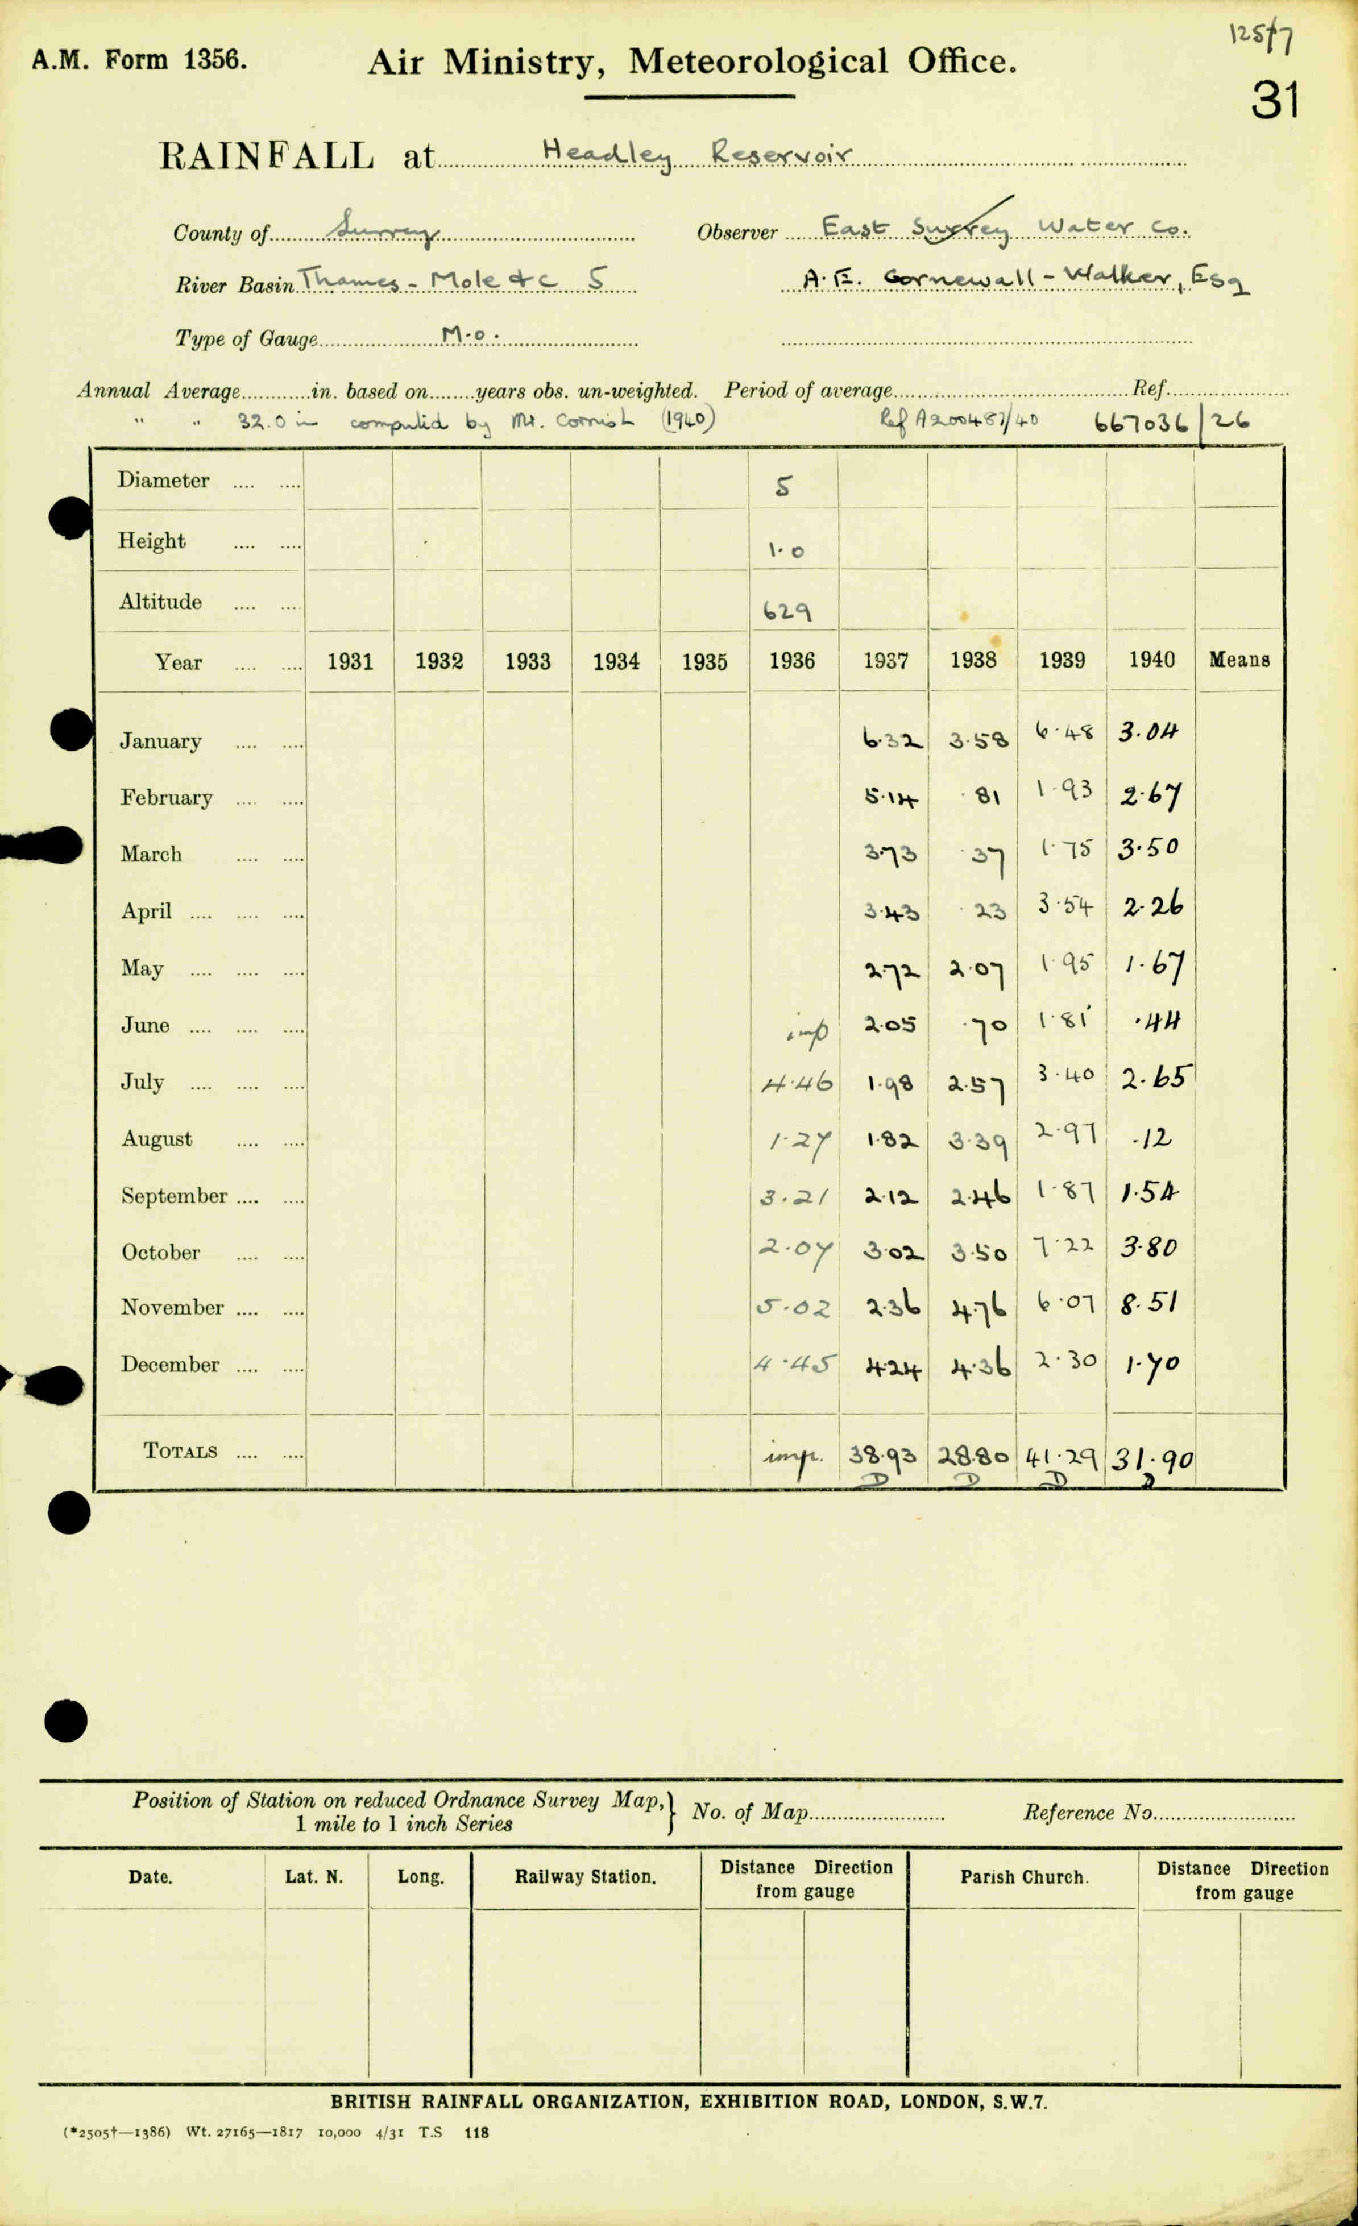 125/7
A.M. Form 1356.
Air Ministry, Meteorological Office.
31
RAINFALL at Headley Reservoir
County of Surrey Observer East Surrey Water Co.
River Basin Thames - Mole &c 5 A.E. Cornewall-Walker, Esq
Type of Gauge M.O.
Annual Average in. based on years obs. un-weighted. Period of average Ref.
" " 32.0 in computed by Mr. Cornish (1940) Ref A200481/40 667036/26
Diameter .... .... 5
Height .... .... 1.0
Altitude .... .... 629
Year .... .... 1931 1932 1933 1934 1935 1936 1937 1938 1939 1940 Means
January .... .... 6.32 3.58 6.48 3.04
February .... .... 5.14 .81 1.93 2.67
March .... .... 3.73 .37 1.75 3.50
April .... .... .... 3.43 .23 3.54 2.26
May .... .... .... 2.72 2.07 1.95 1.67
June .... .... .... imp 2.05 .70 1.81 .44
July .... .... .... 4.46 1.98 2.57 3.40 2.65
August .... .... 1.27 1.82 3.39 2.97 .12
September .... .... 3.21 2.12 2.46 1.87 1.54
October .... .... 2.07 3.02 3.50 7.22 3.80
November .... .... 5.02 2.36 4.76 6.07 8.51
December .... .... 4.45 4.24 4.36 2.30 1.70
TOTALS .... .... imp. 38.93 28.80 41.29 31.90
D D D D
Position of Station on reduced Ordnance Survey Map, 1 mile to 1 inch Series } No. of Map Reference No.
Date. Lat. N. Long. Railway Station. Distance Direction from gauge Parish Church. Distance Direction from gauge
BRITISH RAINFALL ORGANIZATION, EXHIBITION ROAD, LONDON, S.W.7.
(*2505†—1386) Wt. 27165—1817 10,000 4/31 T.S 118